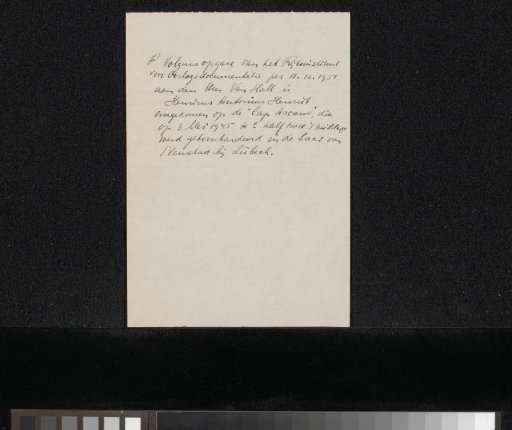 Volgens opgave van het Rijksinstituut
voor Oorlogsdocumentatie per 18.12.1951
aan den Heer Van Hall is
Henricus Antonius Henriët
omgekomen op de "Cap Arcona", die
op 3 Mei 1945 te ± half twee 's middags
werd gebombardeerd in de baai van
Neustadt bij Lübeck.